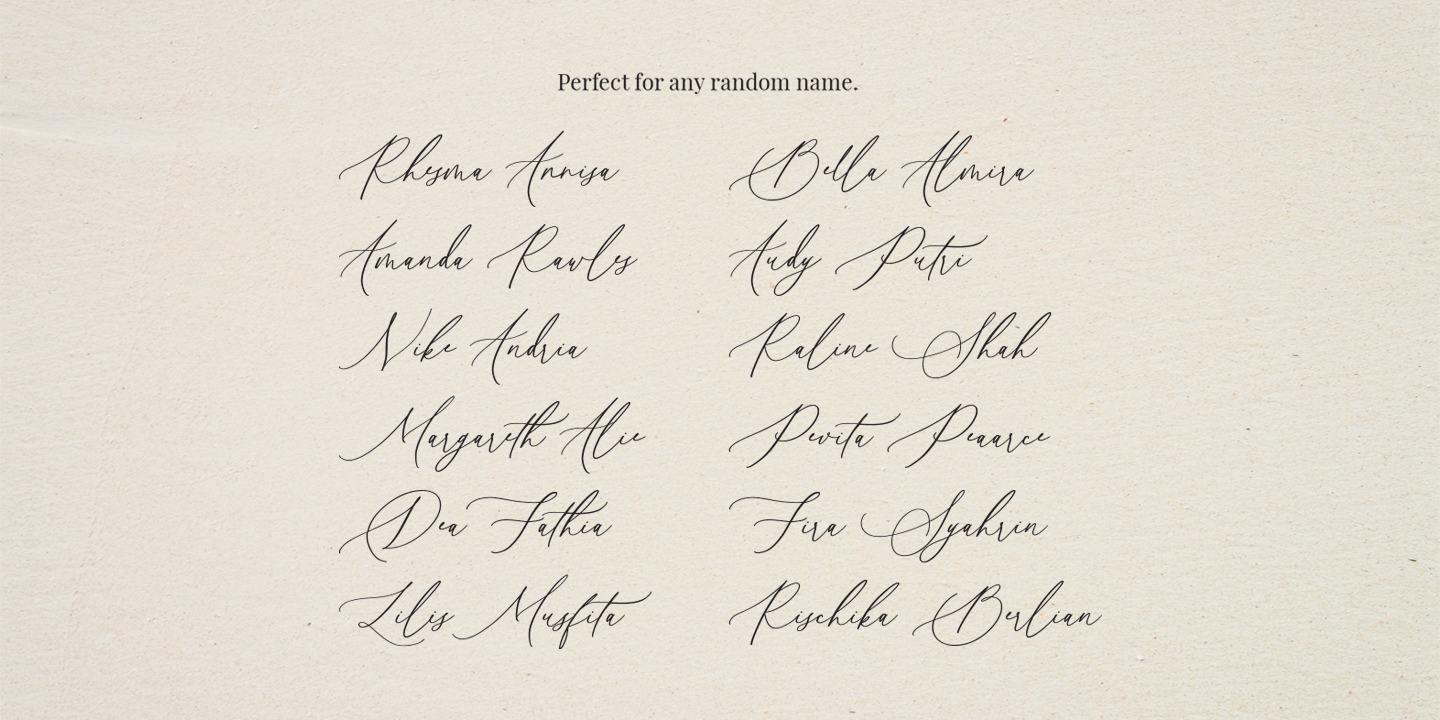 Perfect for any random name.
Rhesma Annisa
Amanda Rawles
Nike Andria
Margareth Alie
Dea Fathia
Lilis Musfita
Bella Almira
Audy Putri
Raline Shah
Pevita Peaarce
Fira Syahrin
Rischika Berlian